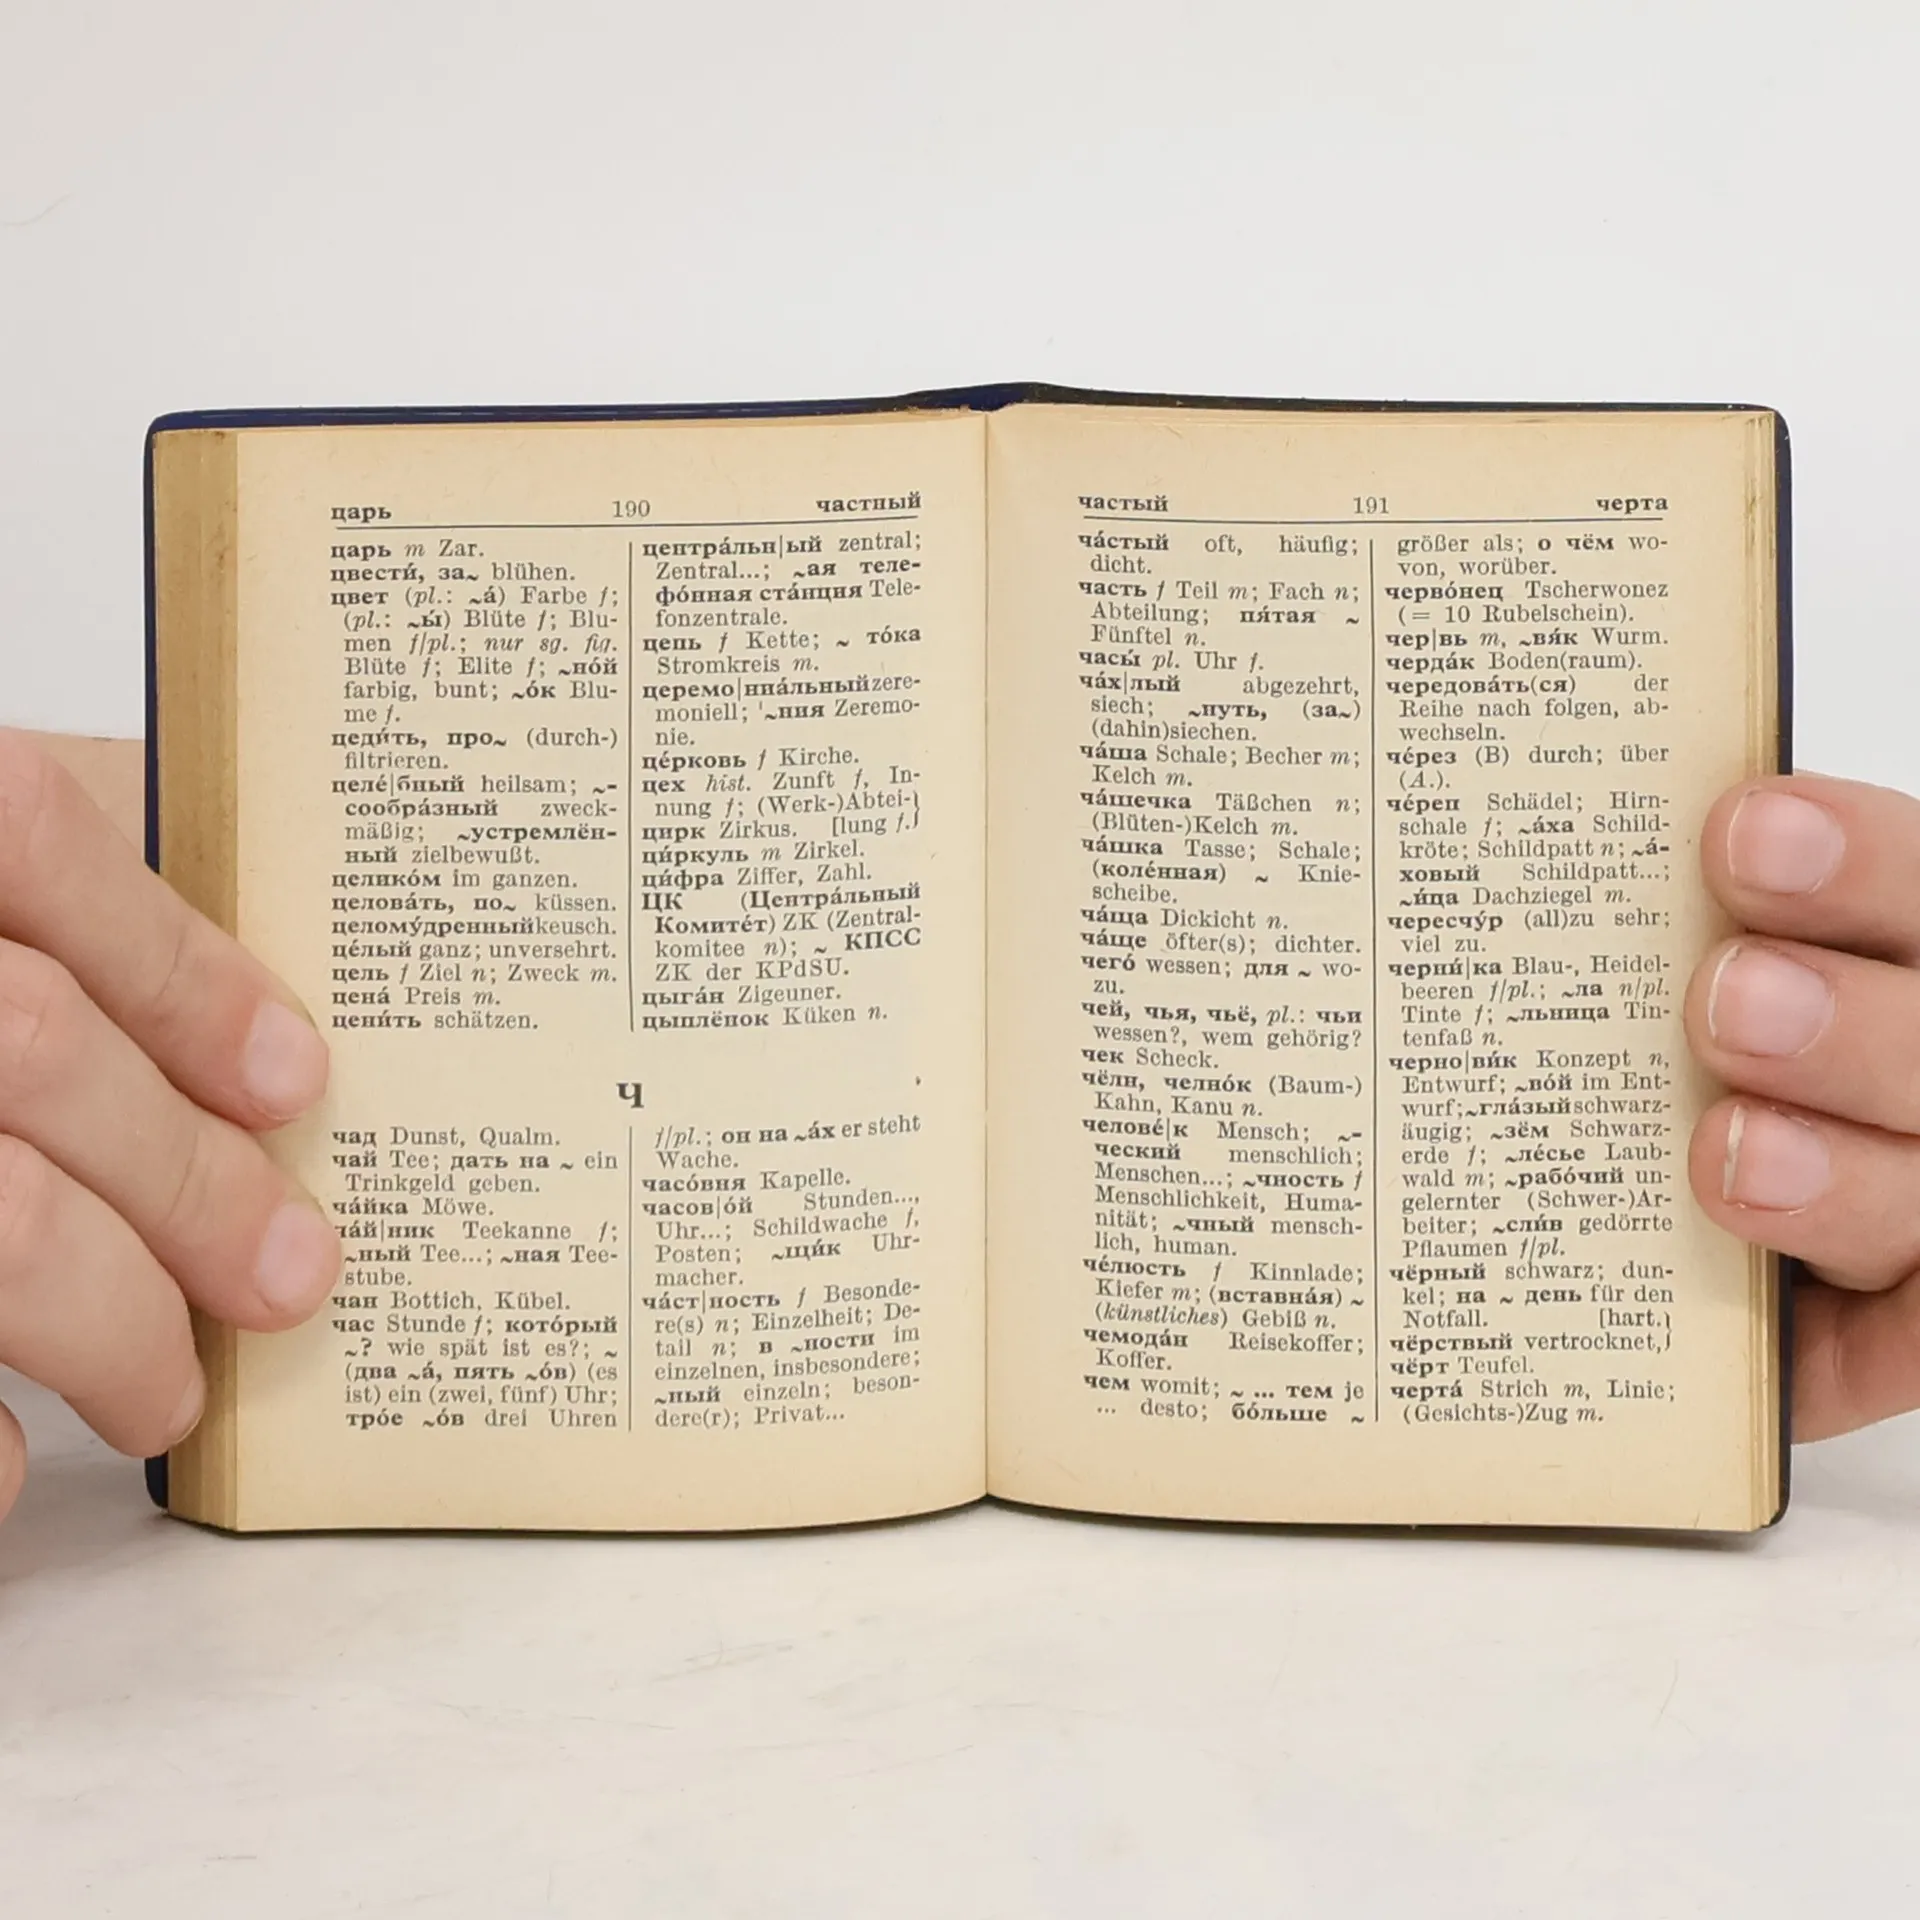 царь 190 частный
царь m Zar.
цвести́, за~ blühen.
цвет (pl.: ~а́) Farbe f;
(pl.: ~ы́) Blüte f; Blu-
men f/pl.; nur sg. fig.
Blüte f; Elite f; ~но́й
farbig, bunt; ~о́к Blu-
me f.
цеди́ть, про~ (durch-)
filtrieren.
целе́|бный heilsam; ~-
сообра́зный zweck-
mäßig; ~устремлён-
ный zielbewußt.
целико́м im ganzen.
целова́ть, по~ küssen.
целому́дренный keusch.
це́лый ganz; unversehrt.
цель f Ziel n; Zweck m.
цена́ Preis m.
цени́ть schätzen.
центра́льн|ый zentral;
Zentral...; ~ая теле-
фо́нная ста́нция Tele-
fonzentrale.
цепь f Kette; ~ то́ка
Stromkreis m.
церемо|ниа́льный zere-
moniell; '~ния Zeremo-
nie.
це́рковь f Kirche.
цех hist. Zunft f, In-
nung f; (Werk-)Abtei-)
цирк Zirkus. [lung f.)
ци́ркуль m Zirkel.
ци́фра Ziffer, Zahl.
ЦК (Центра́льный
Комите́т) ZK (Zentral-
komitee n); ~ КПСС
ZK der KPdSU.
цыга́н Zigeuner.
цыплёнок Küken n.
Ч
чад Dunst, Qualm.
чай Tee; дать на ~ ein
Trinkgeld geben.
ча́йка Möwe.
ча́й|ник Teekanne f;
~ный Tee...; ~ная Tee-
stube.
чан Bottich, Kübel.
час Stunde f; кото́рый
~? wie spät ist es?; ~
(два ~а́, пять ~о́в) (es
ist) ein (zwei, fünf) Uhr;
тро́е ~о́в drei Uhren
f/pl.; он на ~а́х er steht
Wache.
часо́вня Kapelle.
часов|о́й Stunden...,
Uhr...; Schildwache f,
Posten; ~щи́к Uhr-
macher.
ча́ст|ность f Besonde-
re(s) n; Einzelheit; De-
tail n; в ~ности im
einzelnen, insbesondere;
~ный einzeln; beson-
dere(r); Privat...
частый 191 черта
ча́стый oft, häufig;
dicht.
часть f Teil m; Fach n;
Abteilung; пя́тая ~
Fünftel n.
часы́ pl. Uhr f.
ча́х|лый abgezehrt,
siech; ~нуть, (за~)
(dahin)siechen.
ча́ша Schale; Becher m;
Kelch m.
ча́шечка Täßchen n;
(Blüten-)Kelch m.
ча́шка Tasse; Schale;
(коле́нная) ~ Knie-
scheibe.
ча́ща Dickicht n.
ча́ще öfter(s); dichter.
чего́ wessen; для ~ wo-
zu.
чей, чья, чьё, pl.: чьи
wessen?, wem gehörig?
чек Scheck.
чёлн, челно́к (Baum-)
Kahn, Kanu n.
челове́|к Mensch; ~-
ческий menschlich;
Menschen...; ~чность f
Menschlichkeit, Huma-
nität; ~чный mensch-
lich, human.
че́люсть f Kinnlade;
Kiefer m; (вставна́я) ~
(künstliches) Gebiß n.
чемода́н Reisekoffer;
Koffer.
чем womit; ~ ... тем je
... desto; бо́льше ~
größer als; о чём wo-
von, worüber.
черво́нец Tscherwonez
(= 10 Rubelschein).
чер|вь m, ~вя́к Wurm.
черда́к Boden(raum).
чередова́ть(ся) der
Reihe nach folgen, ab-
wechseln.
че́рез (В) durch; über
(A.).
че́реп Schädel; Hirn-
schale f; ~а́ха Schild-
kröte; Schildpatt n; ~а́-
ховый Schildpatt...;
~и́ца Dachziegel m.
чересчу́р (all)zu sehr;
viel zu.
черни́|ка Blau-, Heidel-
beeren f/pl.; ~ла n/pl.
Tinte f; ~льница Tin-
tenfaß n.
черно|ви́к Konzept n,
Entwurf; ~во́й im Ent-
wurf; ~гла́зый schwarz-
äugig; ~зём Schwarz-
erde f; ~ле́сье Laub-
wald m; ~рабо́чий un-
gelernter (Schwer-)Ar-
beiter; ~сли́в gedörrte
Pflaumen f/pl.
чёрный schwarz; dun-
kel; на ~ день für den
Notfall. [hart.)
чёрствый vertrocknet,)
чёрт Teufel.
черта́ Strich m, Linie;
(Gesichts-)Zug m.